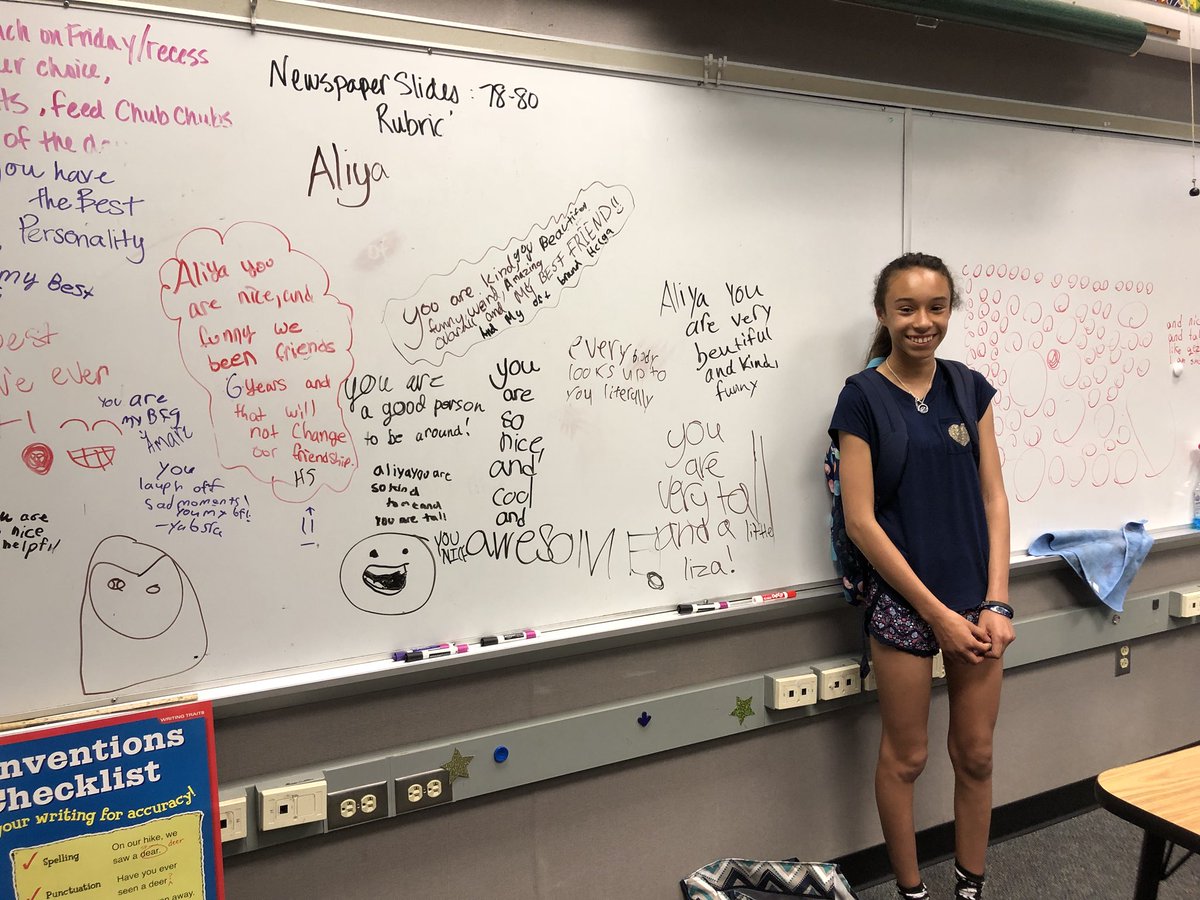 ach on Friday/recess
ur choice,
ts, feed Chub Chubs
of the
you have
the Best
Personality
my Best
est
ve ever
Newspaper Slides : 78-80
Rubric
Aliya
Aliya you
are nice, and
funny we
been friends
6 years and
that will
not change
our friendship.
HS
you are kind, joy Beautiful
funny, weird, Amazing
and MY BEST FRIEND!!
And My
you are
my BFG
Amare
You
laugh off
sad moments!
you my bf!
you are
a good person
to be around!
aliya you are
so kind
to me and
you are tall
you
are
so
nice,
and
cool
and
awesome
YOU
NICE
every body
looks up to
you literally
Aliya you
are very
beutiful
and kind,
funny
you
are
very tall
and a little
liza!
are
nice
helpful
and nic
and tal
nventions
Checklist
WRITING TRAITS
your writing for accuracy!
Spelling
On our hike, we
saw a dear. deer
Punctuation
Have you ever
seen a deer?
away.